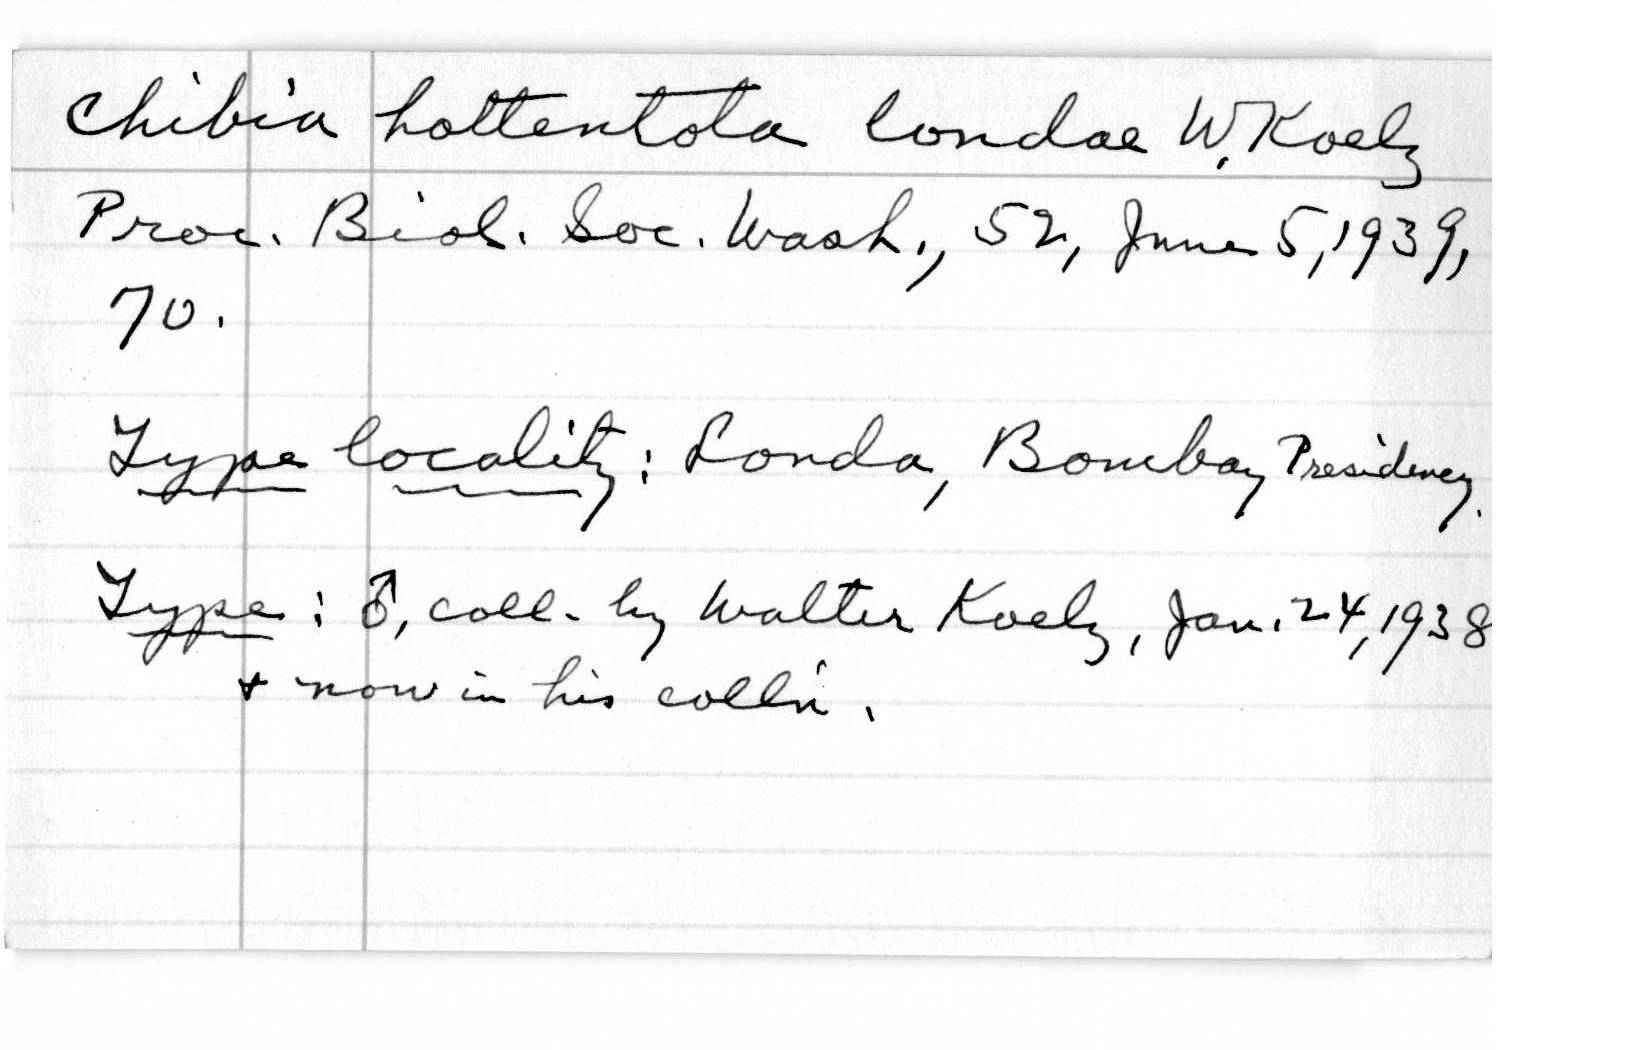 Chibia hottentota londae W. Koelz
Proc. Biol. Soc. Wash., 52, June 5, 1939,
70.
Type locality: Londa, Bombay Presidency.
Type: ♂, coll. by Walter Koelz, Jan. 24, 1938
+ now in his coll'n.